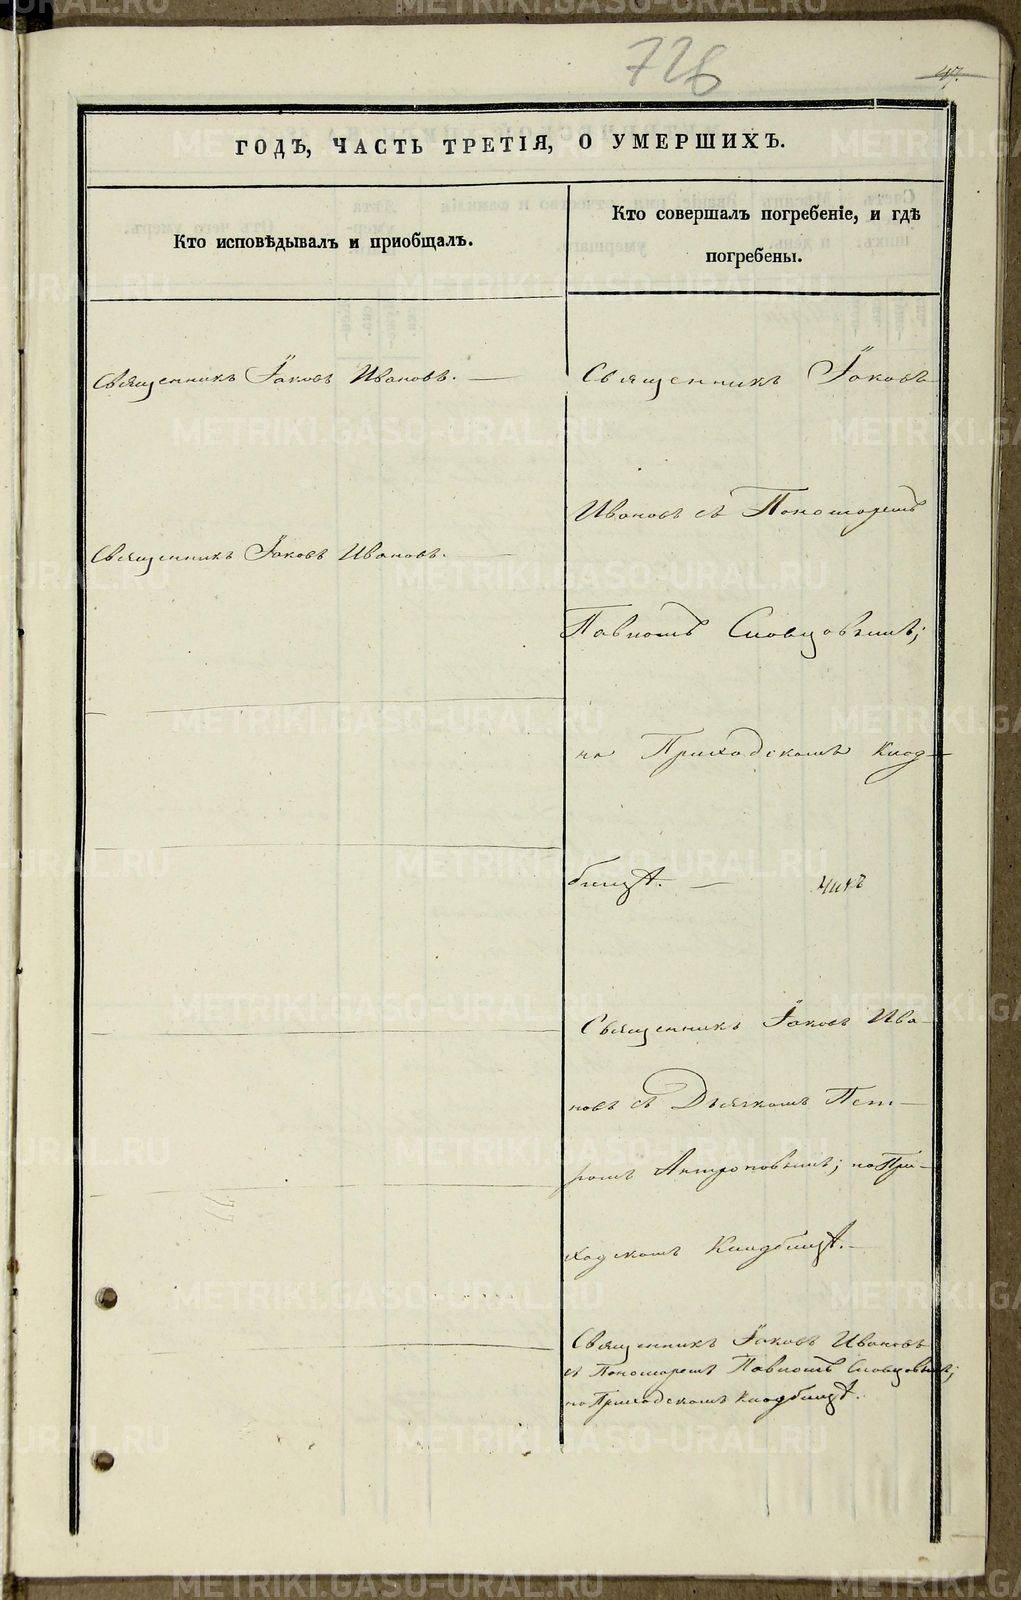 726
47.
ГОДЪ, ЧАСТЬ ТРЕТІЯ, О УМЕРШИХЪ.
Кто исповѣдывалъ и пріобщалъ.
Кто совершалъ погребеніе, и гдѣ
погребены.
Священникъ Іаковъ Ивановъ. —
Священникъ Іаковъ Ивановъ.
Священникъ Іаковъ
Ивановъ съ Пономаремъ
Павломъ Словцовымъ;
на Приходскомъ Клад-
бищѣ. —
Священникъ Іаковъ Ива-
новъ съ Дьячкомъ Пет-
ромъ Антроповымъ; на При-
ходскомъ Кладбищѣ. —
Священникъ Іаковъ Ивановъ
съ Пономаремъ Павломъ Словцовымъ;
на Приходскомъ Кладбищѣ.
METRIKI.GASO-URAL.RU